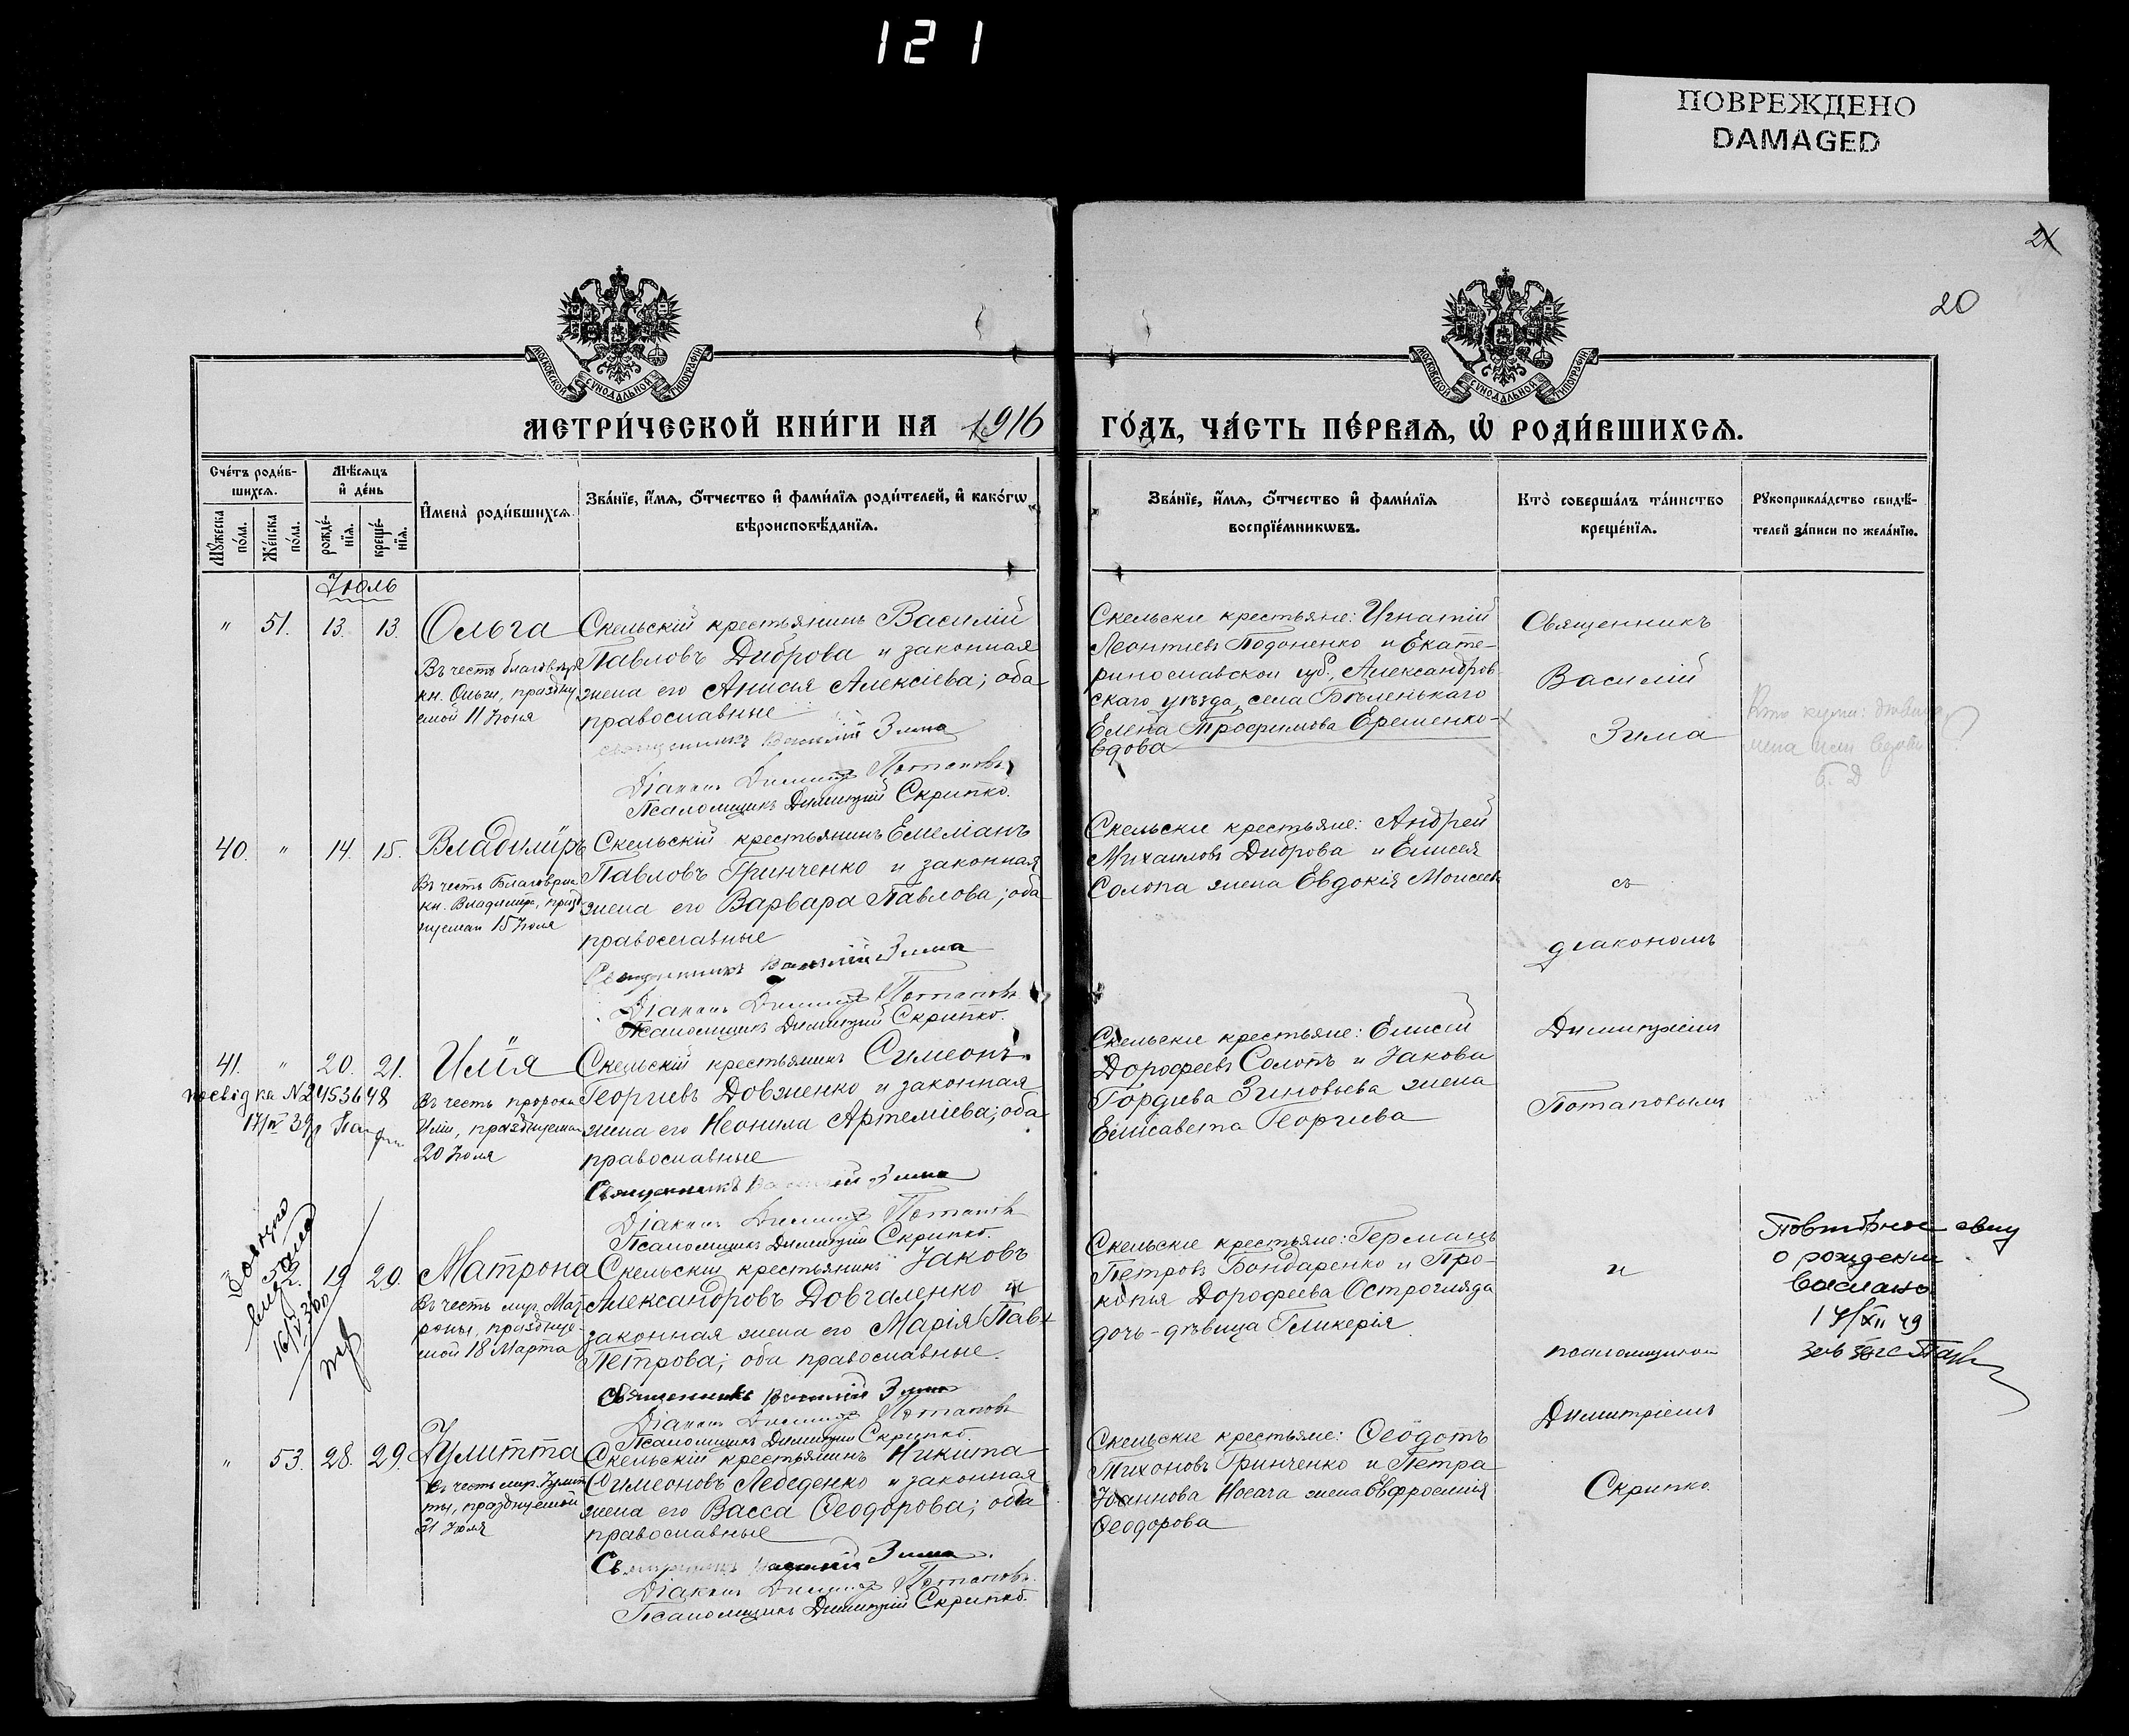 121
ПОВРЕЖДЕНО
DAMAGED
21
20
МОСКОВСКОЙ СѴНОДАЛЬНОЙ ТИПОГРАФІИ
МОСКОВСКОЙ СѴНОДАЛЬНОЙ ТИПОГРАФІИ
МЕТРИ́ЧЕСКОЙ КНИ́ГИ НА 1916 ГО́ДЪ, ЧА́СТЬ ПЕ́РВАѦ, Ѡ҆ РОДИ́ВШИХСѦ.
Сче́тъ роди́в-
шихсѧ.
Мꙋ́жеска по́ла.
Же́нска по́ла.
Мѣ́сѧцъ
и҆ де́нь
рожде́-
нїѧ.
креще́-
нїѧ.
И҆мена̀ роди́вшихсѧ
Зва́нїе, и҆́мѧ, ѻ҆́тчество и҆ фами́лїѧ роди́телей, и҆ како́гѡ
вѣроисповѣ́данїѧ.
Зва́нїе, и҆́мѧ, ѻ҆́тчество и҆ фами́лїѧ
воспрїе́мникѡвъ.
Кто̀ соверша́лъ та́инство
креще́нїѧ.
Рꙋкоприкла́дство свидѣ́-
телей за́писи по жела́нїю.
Іюль
" 51. 13. 13. Ольга
Въ честь благовѣр
кн. Ольги, праздну
емой 11 Іюля
Скельскій крестьянинъ Василій
Павловъ Диброва и законная
жена его Анисія Алексіева; оба
православные
священникъ Василій Зима
Діаконъ Димитрій Потаповъ
Псаломщикъ Димитрій Скрипко.
Скельскіе крестьяне: Игнатій
Леонтіевъ Подоненко и Екате-
ринославской губ., Александров-
скаго уѣзда, села Бѣленькаго
Елена Трофимова Ерешенко-
вдова
Священникъ
Василій
Зима
40. " 14. 15. Владиміръ
Въ честь Благовѣрн
кн. Владиміра, празд
нуемаго 15 Іюля
Скельскій крестьянинъ Емеліанъ
Павловъ Гринченко и законная
жена его Варвара Павлова; оба
православные
Священникъ Василій Зима
Діаконъ Димитрій Потаповъ
Псаломщикъ Димитрій Скрипко.
Скельскіе крестьяне: Андрей
Михаиловъ Диброва и Елисея
Солопа жена Евдокія Моисеева
съ
діакономъ
Димитріемъ
Потаповымъ
41. " 20. 21. Илія
Въ честь пророка
Иліи, празднуемаго
20 Іюля
Скельскій крестьянинъ Симеонъ
Георгіевъ Довженко и законная
жена его Неонила Артеміева; оба
православные
Священникъ Василій Зима
Діаконъ Димитрій Потаповъ
Псаломщикъ Димитрій Скрипко.
Скельскіе крестьяне: Елисей
Дорофеевъ Солопъ и Іакова
Гордіева Зиновьева жена
Елисавета Георгіева
52. 19 20. Матрона
Въ честь муч. Мат
роны, праздкуе-
мой 18 Марта
Скельскій крестьянинъ Іаковъ
Александровъ Довгаленко и
законная жена его Марія Пав
Петрова; оба православные.
Священникъ Василій Зима
Діаконъ Димитрій Потаповъ
Псаломщикъ Димитрій Скрипко.
Скельскіе крестьяне: Германъ
Петровъ Бондаренко и Про-
копія Дорофеева Остроглядa
дочь-дѣвица Гликерія
и
псаломщикомъ
Димитріемъ
Скрипко.
Повторное свид
о рождении
выслано
1
49
" 53. 28. 29. Іулитта
Въ честь муч. Іулит
ты, празднуемой
31 Іюля
Скельскій крестьянинъ Никита
Симеоновъ Лебеденко и законная
жена его Васса Ѳеодорова; оба
православные
Священникъ Василій Зима.
Діаконъ Димитрій Потаповъ.
Псаломщикъ Димитрій Скрипко.
Скельскіе крестьяне: Ѳеодотъ
Тихоновъ Гринченко и Петра
Іоаннова Носача жена Евфросинія
Ѳеодорова